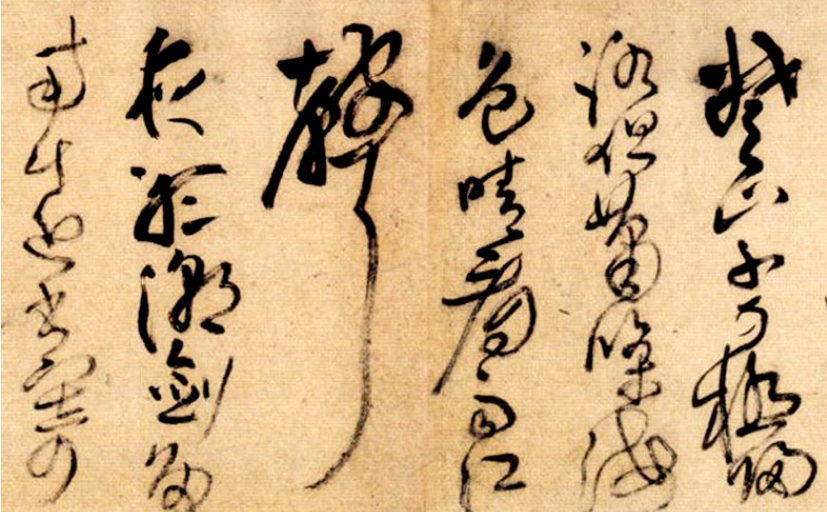 楚山不可極歸
路但蕭條海
色晴看雨江
聲
夜聽潮劍留
南斗近書寄